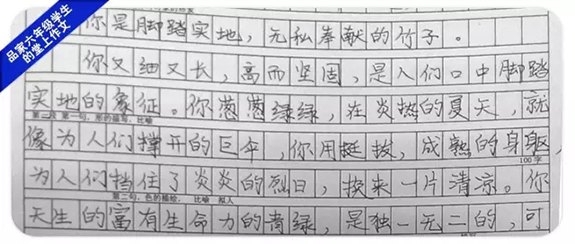 品家六年级学生
的堂上作文
你是脚踏实地，无私奉献的竹子。
你又细又长，高而坚固，是人们口中脚踏
实地的象征。你葱葱绿绿，在炎热的夏天，就
第二段 第一句，形的描写，比喻
像为人们撑开的巨伞，你用挺拔，成熟的身躯，
100字
为人们挡住了炎炎的烈日，换来一片清凉。你
第二句，色的描绘， 比喻 拟人
天生的富有生命力的青绿，是独一无二的，可